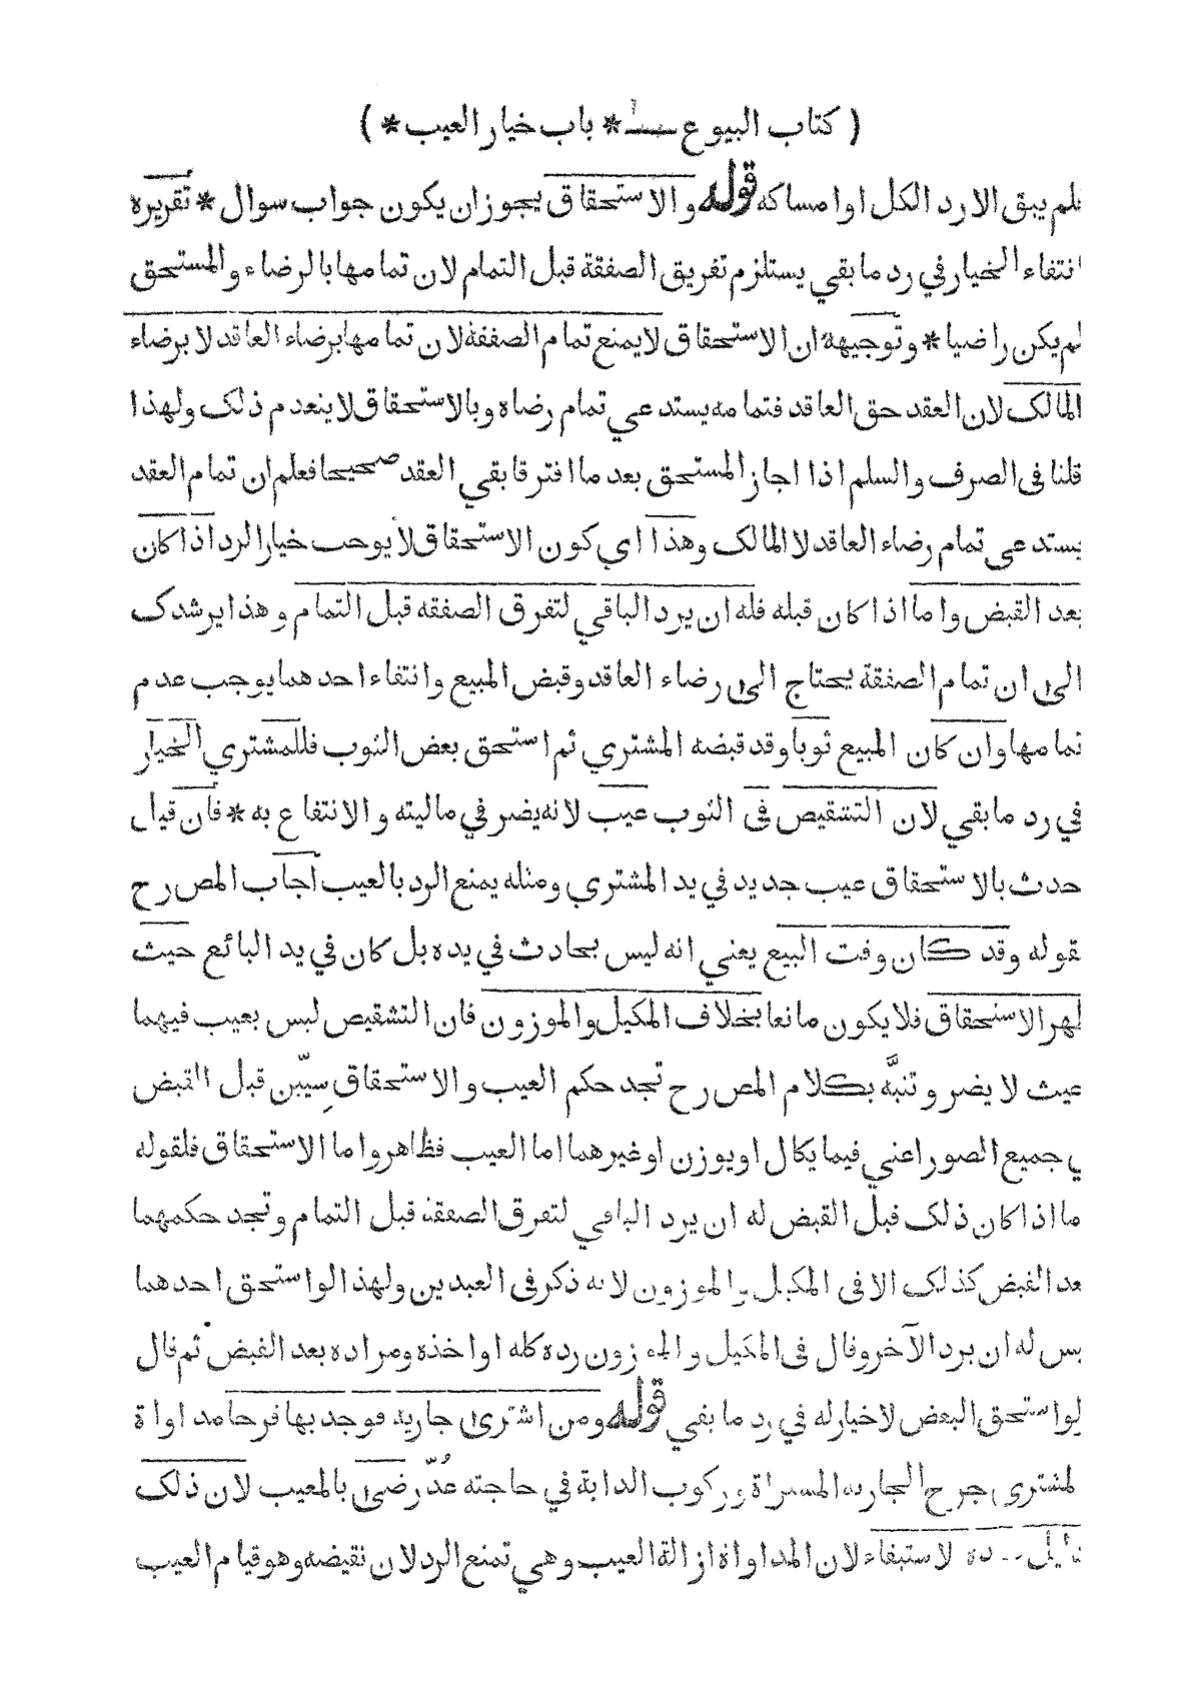 ( كتاب البيوع * باب خيار العيب * )
فلم يبق الا رد الكل او امساكه قوله والاستحقاق يجوز ان يكون جواب سوال * تقريره
انتفاء الخيار في رد ما بقي يستلزم تفريق الصفقة قبل التمام لان تمامها بالرضاء والمستحق
لم يكن راضيا * وتوجيهه ان الاستحقاق لا يمنع تمام الصفقة لان تمامها برضاء العاقد لا برضاء
المالك لان العقد حق العاقد فتمامه يستدعي تمام رضاه وبالاستحقاق لا ينعدم ذلك ولهذا
قلنا في الصرف والسلم اذا اجاز المستحق بعد ما افترقا بقي العقد صحيحا فعلم ان تمام العقد
يستدعي تمام رضاء العاقد لا المالك وهذا اي كون الاستحقاق لا يوجب خيار الرد اذا كان
بعد القبض واما اذا كان قبله فله ان يرد الباقي لتفرق الصفقه قبل التمام وهذا يرشدك
الى ان تمام الصفقة يحتاج الى رضاء العاقد وقبض المبيع وانتفاء احدهما يوجب عدم
تمامها وان كان المبيع ثوبا وقد قبضه المشتري ثم استحق بعض الثوب فللمشتري الخيار
في رد ما بقي لان التشقيص في الثوب عيب لانه يضر في ماليته والانتفاع به * فان قيل
حدث بالاستحقاق عيب جديد في يد المشتري ومثله يمنع الرد بالعيب اجاب المص رح
بقوله وقد كان وقت البيع يعني انه ليس بحادث في يده بل كان في يد البائع حيث
ظهر الاستحقاق فلا يكون مانعا بخلاف المكيل والموزون فان التشقيص ليس بعيب فيهما
حيث لا يضر وتنبّه بكلام المص رح تجد حكم العيب والاستحقاق سيّين قبل القبض
في جميع الصور اعني فيما يكال او يوزن او غيرهما اما العيب فظاهر واما الاستحقاق فلقوله
اما اذا كان ذلك قبل القبض له ان يرد الباقي لتفرق الصفقة قبل التمام وتجد حكمهما
بعد القبض كذلك الا في المكيل والموزون لانه ذكر في العبدين ولهذا لو استحق احدهما
ليس له ان يرد الآخر وقال في المكيل والموزون رده كله او اخذه ومراده بعد القبض ثم قال
لو استحق البعض لا خيار له في رد ما بقي قوله ومن اشترى جارية فوجد بها قرحا مداواة
المشتري جرح الجارية المشتراة وركوب الدابة في حاجته عُدّ رضى بالمعيب لان ذلك
دليل لاستبقاء لان المداواة ازالة العيب وهي تمنع الرد لان نقيضه وهو قيام العيب